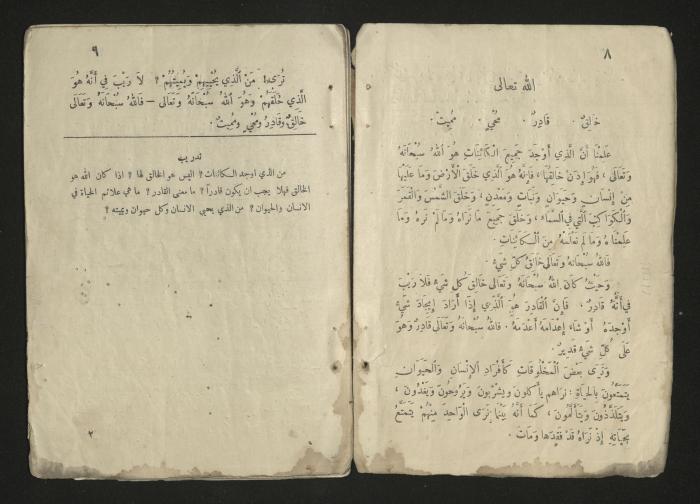 ٨
الله تعالى
خَالِقٌ . قَادِرٌ . مُحْيٍ . مُمِيتٌ .
عَلِمْنَا أَنَّ الَّذِي أَوْجَدَ جَمِيعَ الْكَائِنَاتِ هُوَ اللهُ سُبْحَانَهُ
وَتَعَالَى ، فَهُوَ إِذَنْ خَالِقُهَا ، فَإِنَّهُ هُوَ الَّذِي خَلَقَ الْأَرْضَ وَمَا عَلَيْهَا
مِنْ إِنْسَانٍ وَحَيَوَانٍ وَنَبَاتٍ وَمَعْدِنٍ ، وَخَلَقَ الشَّمْسَ وَالْقَمَرَ
وَالْكَوَاكِبَ الَّتِي فِي السَّمَاءِ ، وَخَلَقَ جَمِيعَ مَا نَرَاهُ وَمَا لَمْ نَرَهُ وَمَا
عَلِمْنَاهُ وَمَا لَمْ نَعْلَمْهُ مِنَ الْكَائِنَاتِ .
فَاللهُ سُبْحَانَهُ وَتَعَالَى خَالِقُ كُلِّ شَيْءٍ .
وَحَيْثُ كَانَ اللهُ سُبْحَانَهُ وَتَعَالَى خَالِقَ كُلِّ شَيْءٍ فَلَا رَيْبَ
فِي أَنَّهُ قَادِرٌ ، فَإِنَّ الْقَادِرَ هُوَ الَّذِي إِذَا أَرَادَ إِيجَادَ شَيْءٍ
أَوْجَدَهُ أَوْ شَاءَ إِعْدَامَهُ أَعْدَمَهُ . فَاللهُ سُبْحَانَهُ وَتَعَالَى قَادِرٌ وَهُوَ
عَلَى كُلِّ شَيْءٍ قَدِيرٌ .
وَنَرَى بَعْضَ الْمَخْلُوقَاتِ كَأَفْرَادِ الْإِنْسَانِ وَالْحَيَوَانِ
يَتَمَتَّعُونَ بِالْحَيَاةِ : نَرَاهُمْ يَأْكُلُونَ وَيَشْرَبُونَ وَيَرُوحُونَ وَيَغْدُونَ ،
وَيَتَلَذَّذُونَ وَيَتَأَلَّمُونَ ، كَمَا أَنَّهُ بَيْنَمَا نَرَى الْوَاحِدَ مِنْهُمْ يَتَمَتَّعُ
بِحَيَاتِهِ إِذْ نَرَاهُ قَدْ فَقَدَهَا وَمَاتَ .
٩
تُرَى! مَنْ الَّذِي يُحْيِيهِمْ وَيُمِيتُهُمْ ؟ لَا رَيْبَ فِي أَنَّهُ هُوَ
الَّذِي خَلَقَهُمْ وَهُوَ اللهُ سُبْحَانَهُ وَتَعَالَى — فَاللهُ سُبْحَانَهُ وَتَعَالَى
خَالِقٌ وَقَادِرٌ وَمُحْيٍ وَمُمِيتٌ .
تدريب
من الذي اوجد الكائنات؟ اليس هو الخالق لها ؟ اذا كان الله هو
الخالق فهلا يجب ان يكون قادراً ؟ ما معنى القادر ؟ ما هي علائم الحياة في
الانسان والحيوان ؟ من الذي يحيي الانسان وكل حيوان ويميته ؟
٢